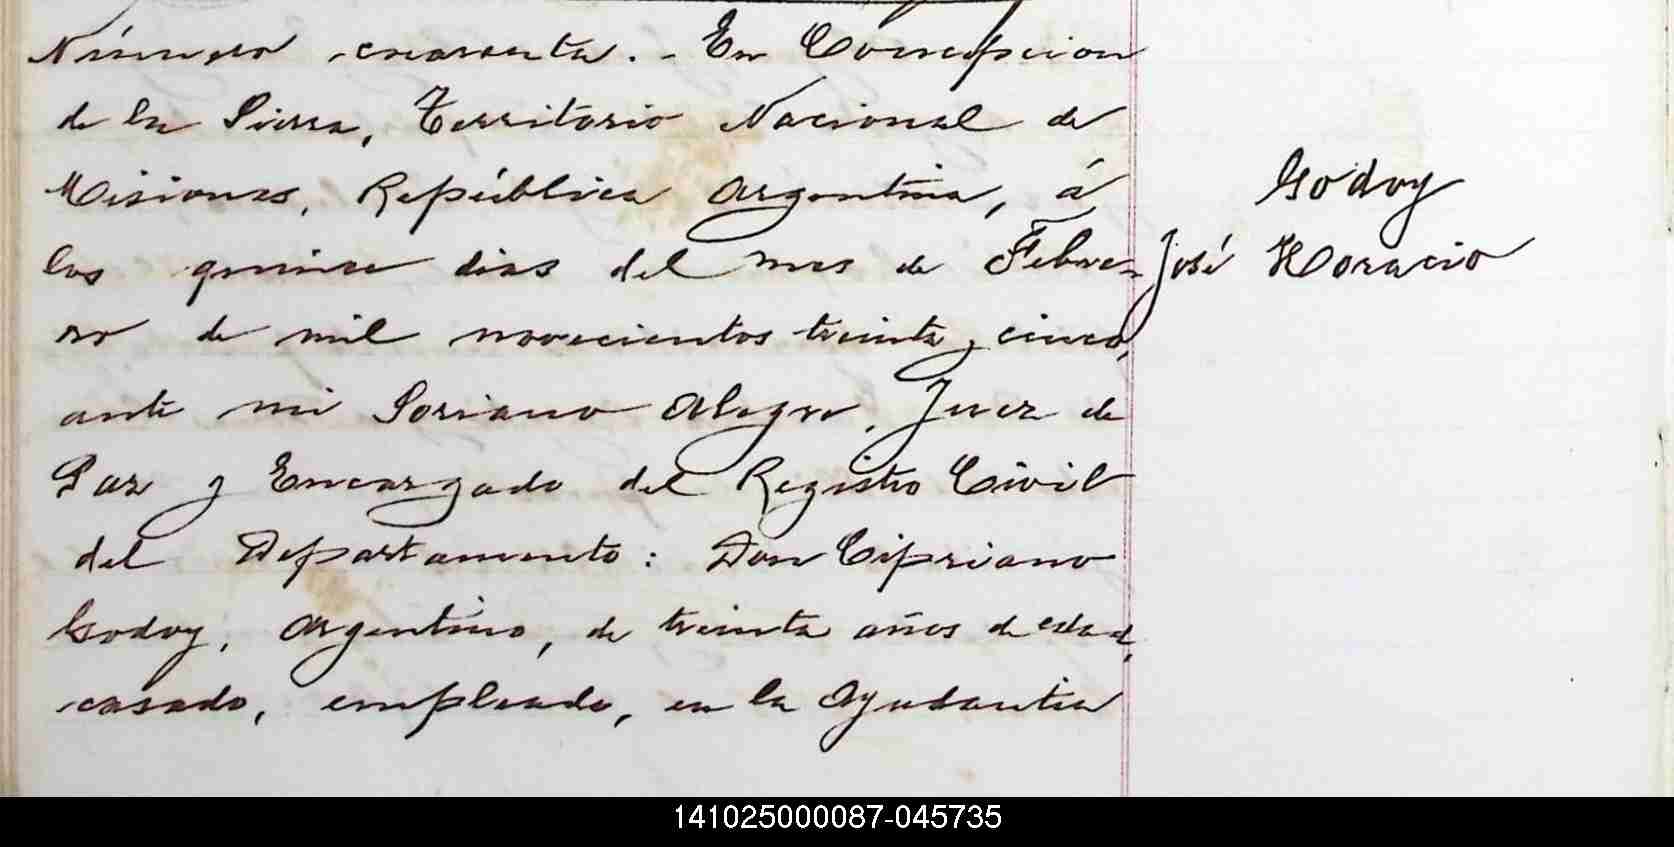 Número cuarenta. - En Concepcion
de la Sierra, Territorio Nacional de
Misiones, República Argentina, á
los quince dias del mes de Febre-
ro de mil novecientos treinta y cinco,
ante mi Soriano Alegre, Juez de
Paz y Encargado del Registro Civil
del Departamento: Don Cipriano
Godoy, Argentino, de treinta años de edad,
casado, empleado, en la Ayudantia
Godoy
José Horacio
141025000087-045735